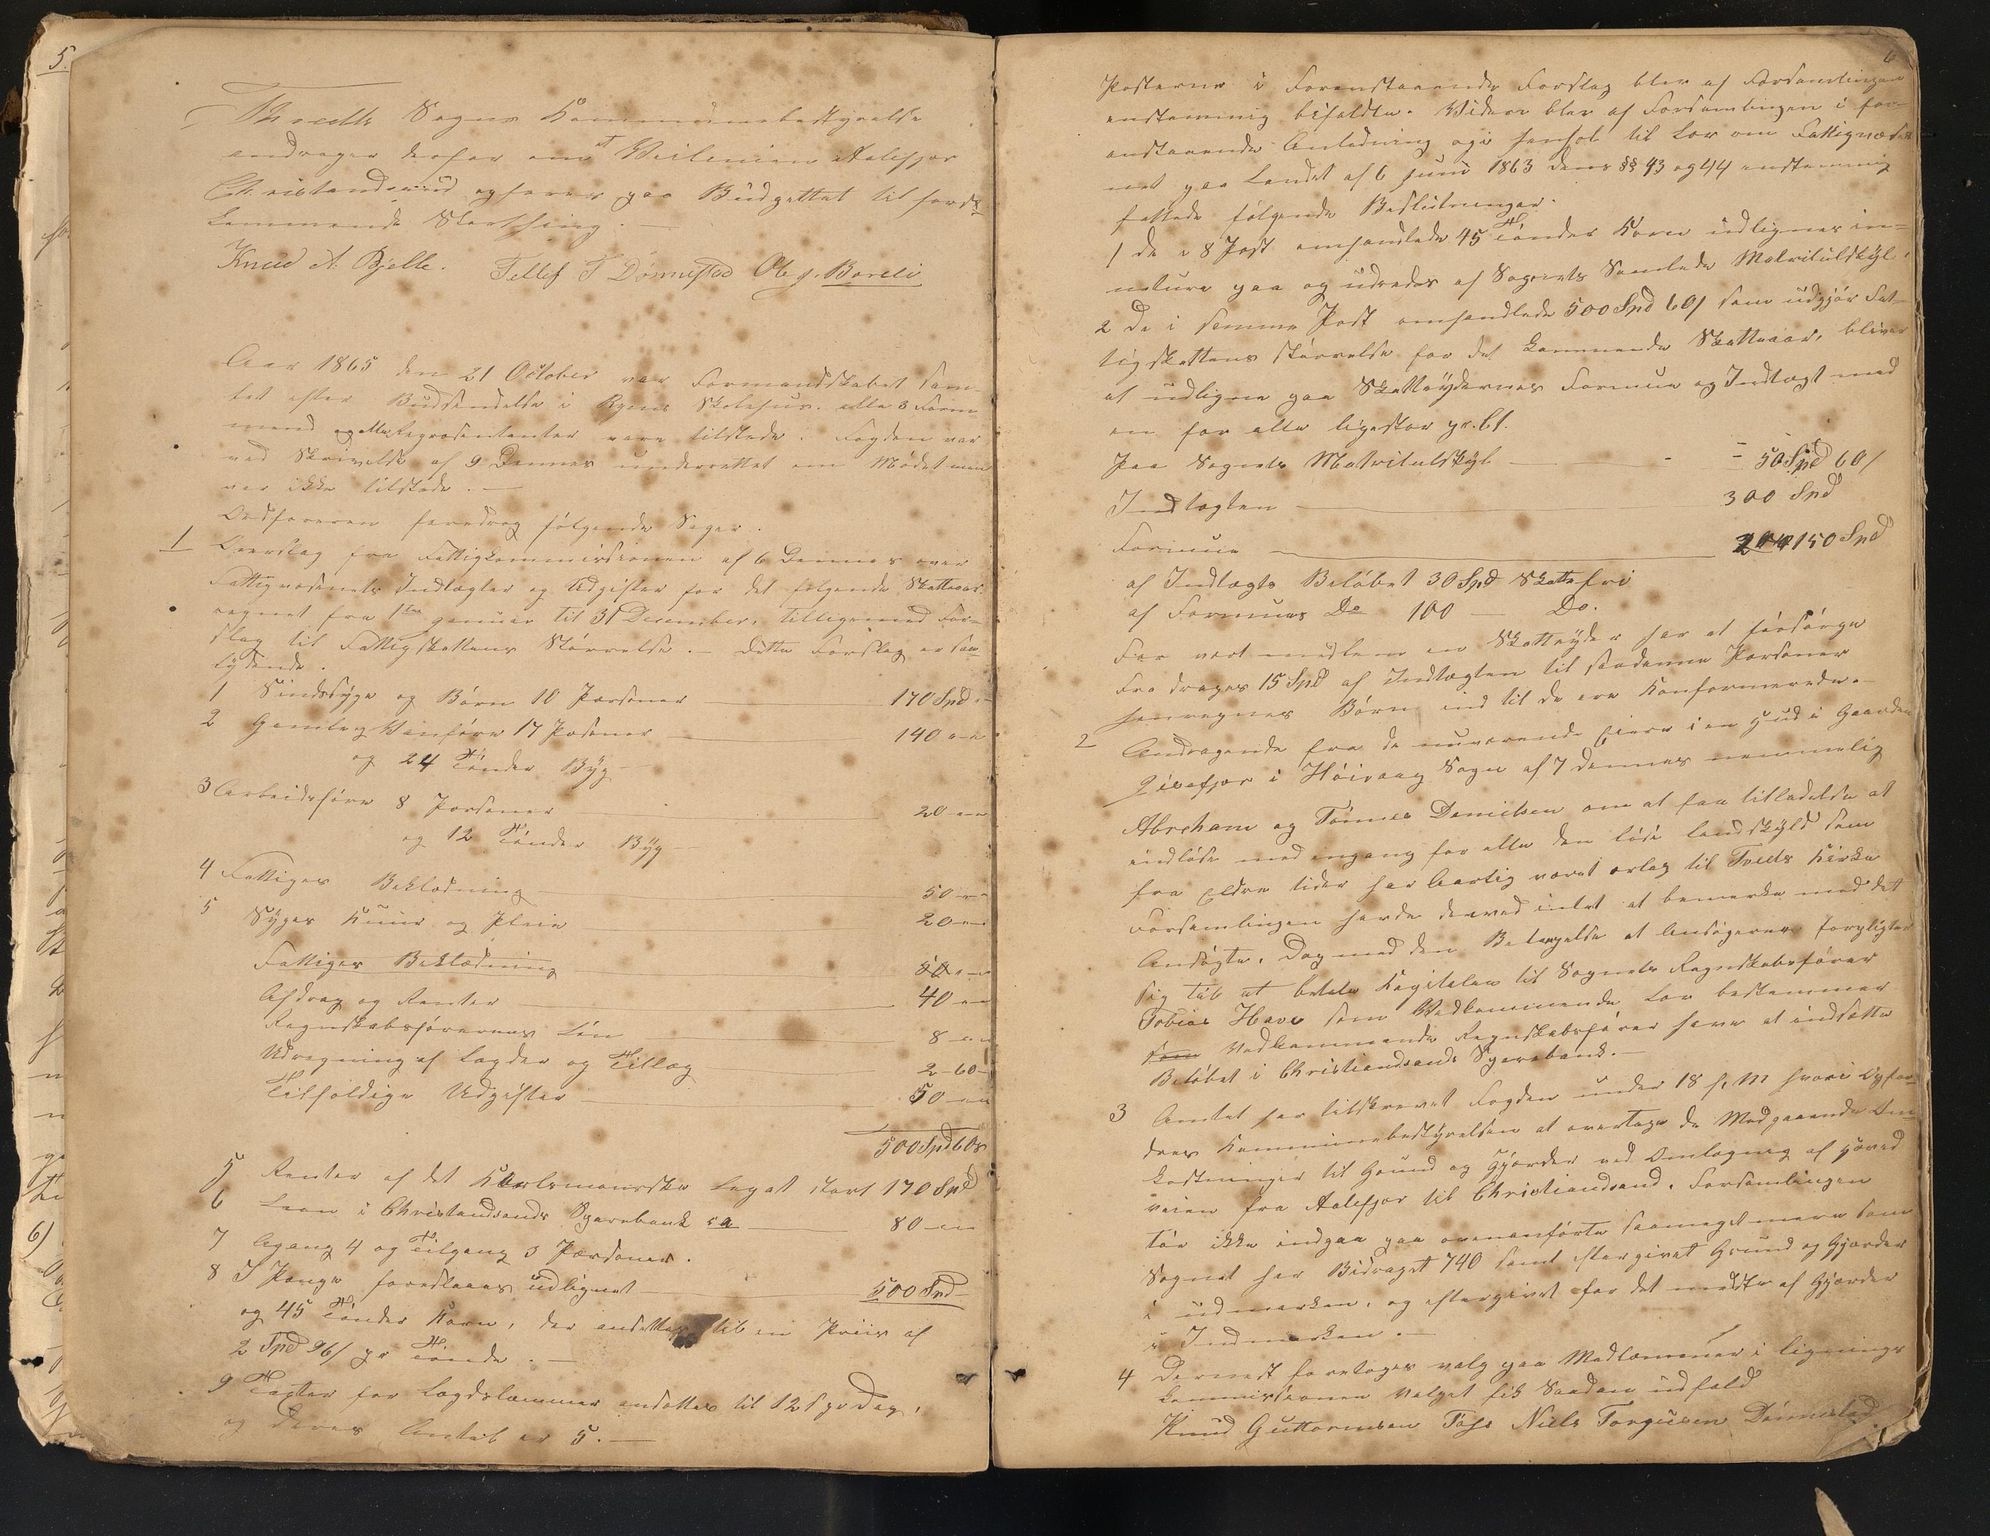 5.
Thveedts Sogns Kommunebestyrelse
andrager derfor om at Veilenien Aalefjær
Christiandsand opføres paa Budgettet til førstkommende
Storthing. —
Knud A. Bjelle. Tellef T Dønnestad Ole J. Boreli
Aar 1865 den 21 October var Formandskabet sam-
let efter Budsendelse i Ryens Skolehus. alle 3 Form-
mænd og alle Repræsentanter vare tilstede. Fogden var
ved Skrivelse af 9 Dennes underrettet om Mødet men
var ikke tilstede. —
Ordføreren foredrog følgende Sager.
1 Overslag fra Fattigkommissionen af 6 Dennes over
Fattigvæsenets Indtægter og Udgifter for det følgende Skatteaar
regnet fra 1ste Januar til 31 December, tilligemed For-
slag til Fattigskattens Størrelse. — Dette Forslag er saa
lydende.
1 Sindssyge og Børn 10 Personer — 170 Spd „-
2 Gamle og Vanføre 17 Personer — 140 „-„
og 24 Tønder Byg —
3 Arbeidsføre 8 Personer — 20 „-„
og 12 Tønder Byg —
4 Fattiges Beklædning — 50 „-„
5 Syges Kuur og Pleie — 20 „-„
Fattiges Beklædning — 50 „-„
Afdrag og Renter — 40 „-„
Regnskabsførerens Løn — 8 „-„
Udregning af Lægder og Tillæg — 2-60-
Tilfældige Udgifter — 50 „-„
500 Spd 60s
5 Renter af det Karlsmonsske Legat stort 170 Spd
6 Laan i Christiansands Sparebank ca — 80 „-„
7 Agang 4 og Tilgang 3 Personer.
8 I Penge foreslaaes udlignet — 500 Spd
og 45 Tønder Korn, der ansættes til en Priis af
2 Spd 96/ pr Tønde. —
9 Taxter for Lægdslemmer ansættes til 12 s pr Dag,
og deres Antal er 5. —
6
Posterne i Forenstaaende Forslag blev af Forsamlingen
enstemmig bifaldte. Videre blev af Forsamlingen i for-
anstaaende Anledning og i Henhold til Lov om Fattigvæse
net paa Landet af 6 Juni 1863 dens §§ 43 og 44 enstemmig
fattede følgende Beslutninger.
1 de i 8 Post omhandlede 45 Tønder Korn udlignes in-
natura paa og udredes af Sognets Samlede Matrikulskyld.
2 De i samme Post omhandlede 500 Spd 60/ som udgjør Fat-
tigskattens størrelse for det kommende Skatteaar, bliver
at udligne paa Skatteyderernes Formue og Indtægt med
en for alle ligestor pr. Ct.
Paa Sognets Matrikulskyld — 50 Spd 60/
Indtægten — 300 Spd
Formue — 150 Spd
af Indtægts Beløbet 30 Spd Skattefri
af Formues Do 100 — Do.
For vært medlem en Skatteyder har at forsørge
fra drages 15 Spd af Indtægten til saadanne Personer
henregnes Børn ind til de ere Konfirmerede. —
2 Andragende fra de nuværende Eiere i en Hud i Gaarden
i Høivaag Sogn af 7 dennes nemmelig
Abraham og Tønnes Danielsen om at faa tilladelse at
indløse med engang for alle den løse landskyld som
fra Eldre tider har aarlig været erlag til Tveits Kirke
Forsamlingen havde derved intet at bemerke med det
Ansøgte. Dog med den Betingelse at Ansøgerne forpligter
sig til at betale Kapitalen til Sognets Regnskabsfører
Tobias Have som Vedkommende Lov bestemmer
som Vedkommende Regnskabsfører have at indsætte
Beløbet i Christiandsands Sparebank. —
3 Amtet har tilskrevet Fogden under 18 f. M hvori Opfor-
dres Kommunebestyrelsen at overtage de Medgaaende Om-
kostninger til Grund og Gjærder ved Omlægning af Hoved
veien fra Aalefjær til Christiandsand. Forsamlingen
tør ikke indgaa paa ovenanførte saameget mere som
Sognet har Bidraget 740 samt eftergivet Grund og Gjærder
i udmarken, og eftergivet for det meste af Gjærder
i Indmarken. —
4 Dernæst foretages valg paa Medlemmer i lignings
kommissionen Valget fik Saadan udfald
Knud Guttormsen Foss Niels Torgusen Dønnestad